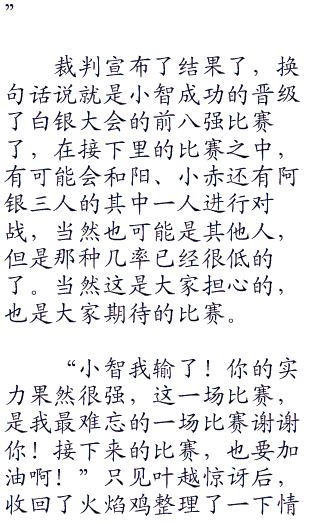 ”
裁判宣布了结果了，换
句话说就是小智成功的晋级
了白银大会的前八强比赛
了，在接下里的比赛之中，
有可能会和阳、小赤还有阿
银三人的其中一人进行对
战，当然也可能是其他人，
但是那种几率已经很低的
了。当然这是大家担心的，
也是大家期待的比赛。
“小智我输了！你的实
力果然很强，这一场比赛，
是我最难忘的一场比赛谢谢
你！接下来的比赛，也要加
油啊！”只见叶越惊讶后，
收回了火焰鸡整理了一下情